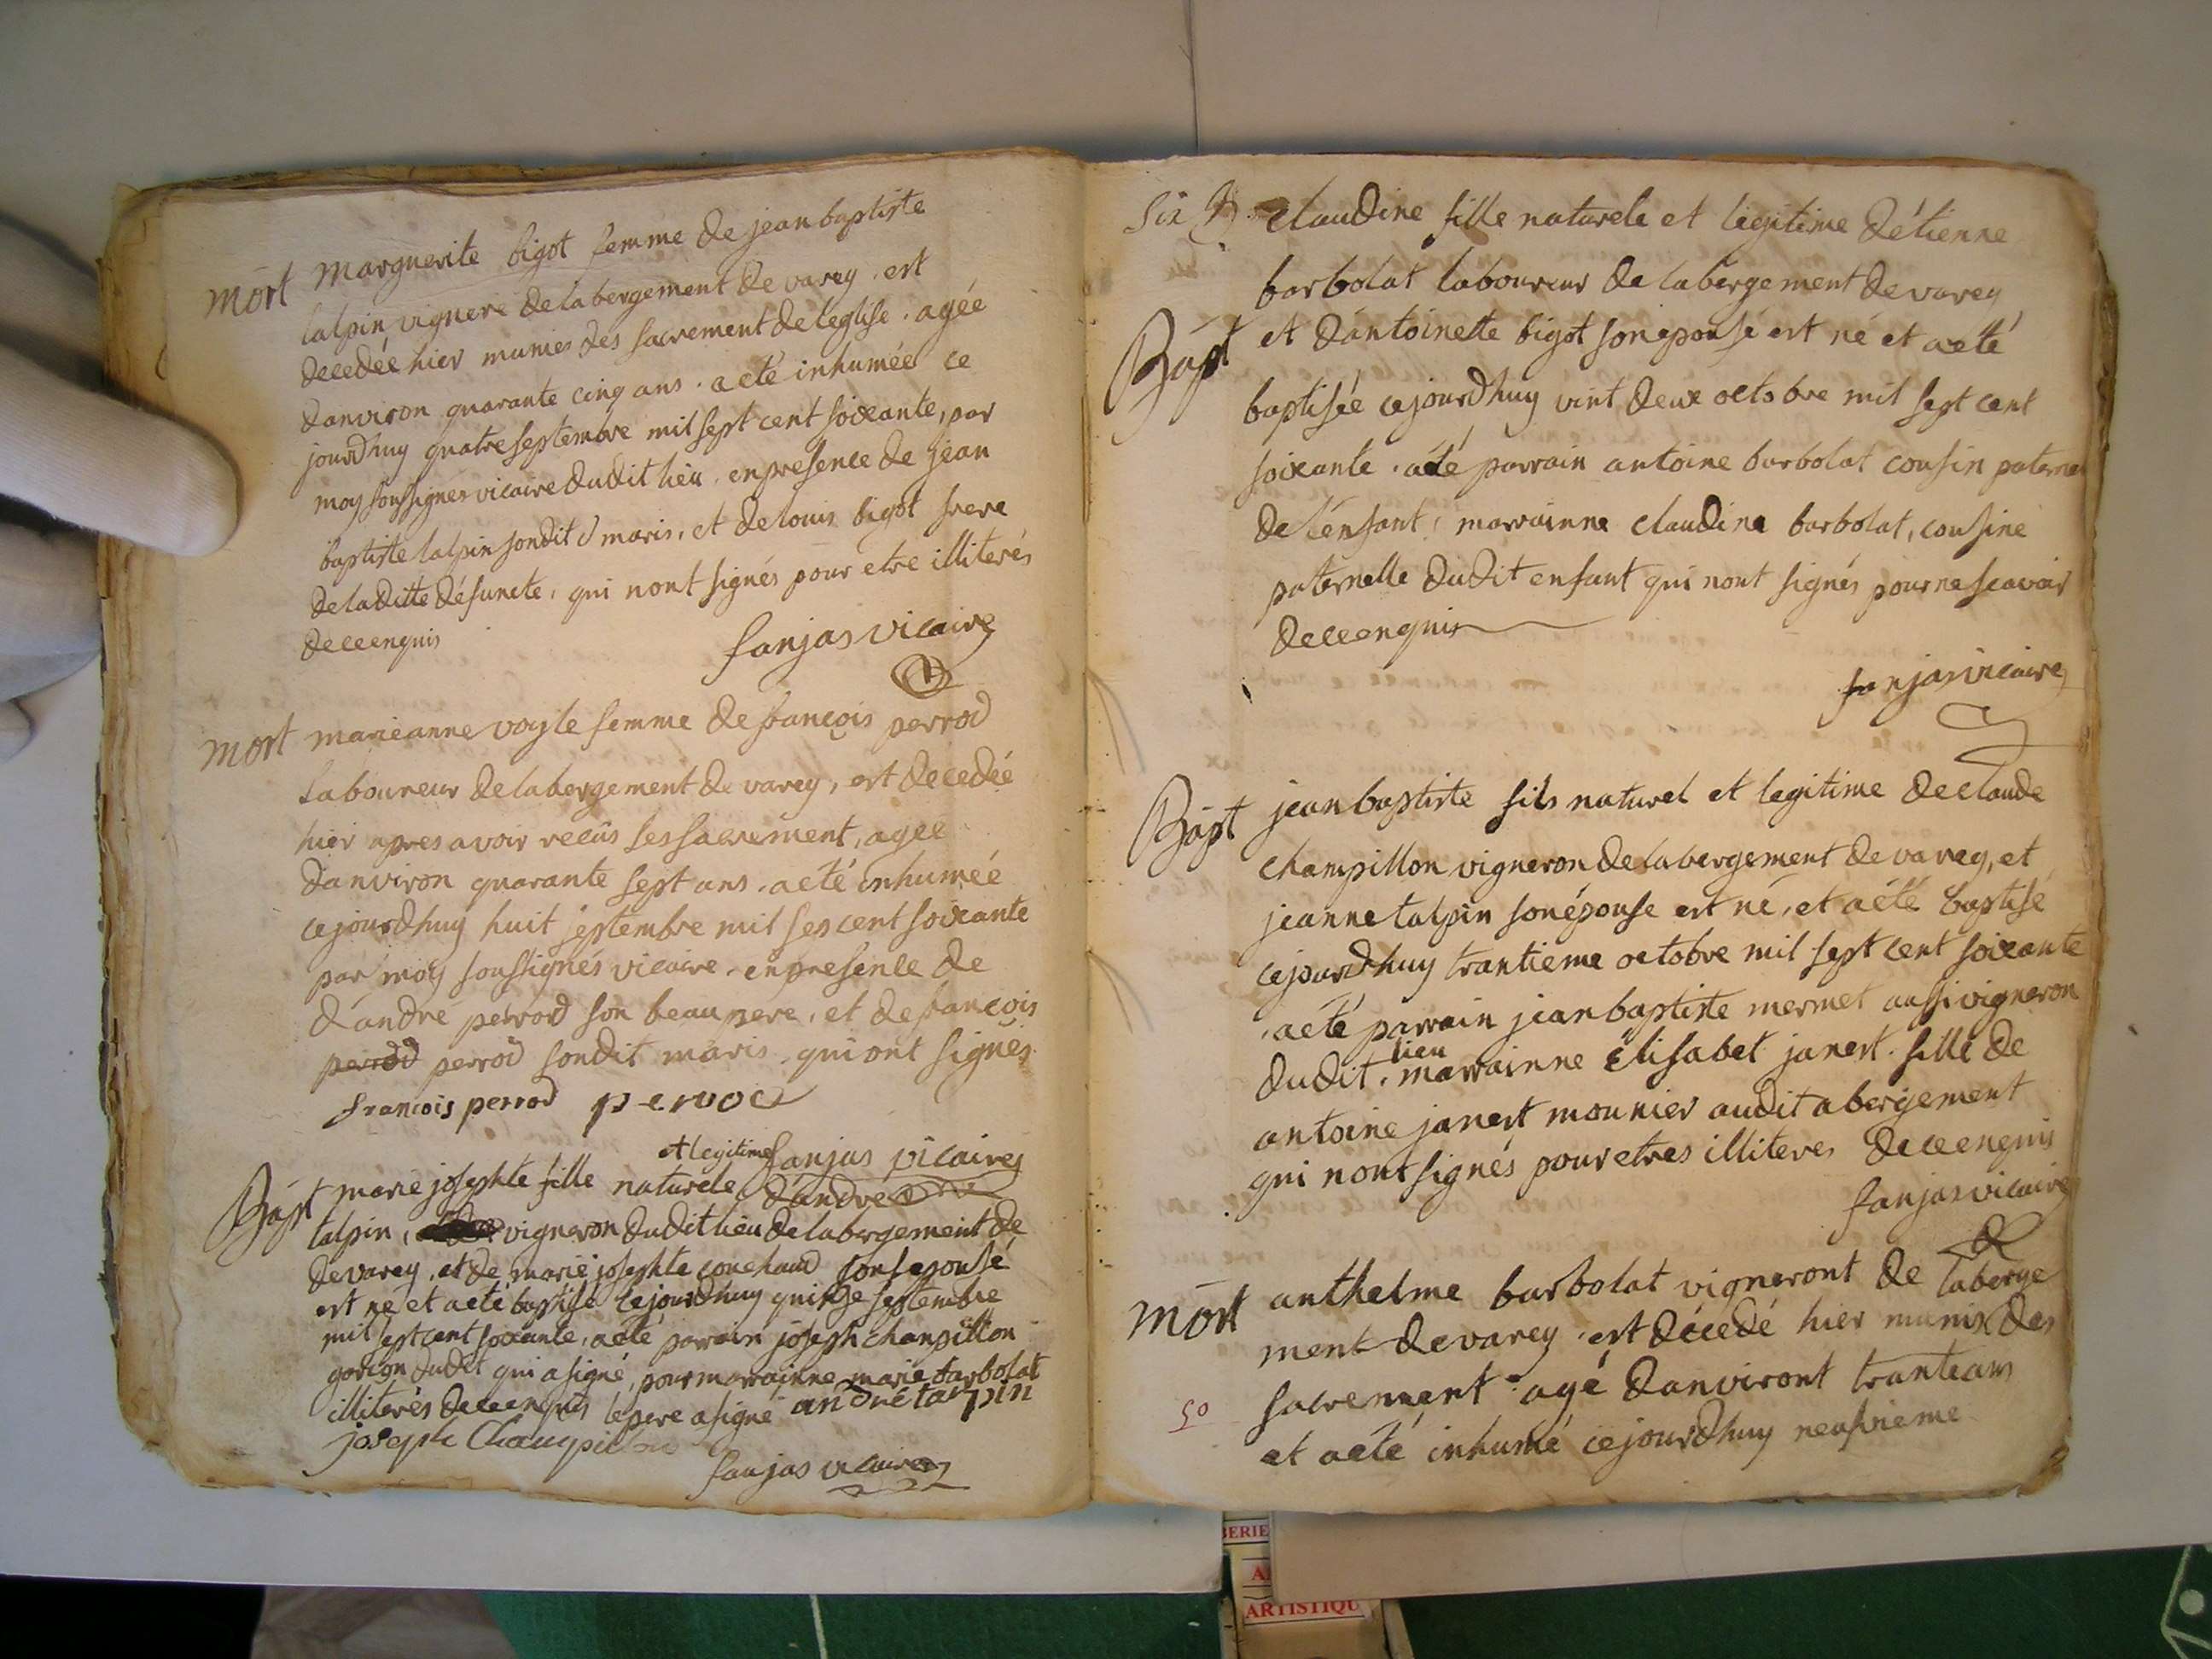 mort marguerite bigot femme de jean baptiste
talpin vignere delabergement de varey. est
decedée hier munies des sacrement de leglise. agée
danviron quarante cinq ans. aeté inhumée ce
jourdhuy quatre septembre mil sept cent soixante, par
moy soussignés vicaire dudit lieu. enpresence de jean
baptiste talpin sondit maris, et delouis bigot frere
deladitte défuncte, qui nont signés pour etre illiterés
deceenquis fanjas vicaire
mort marieanne voyle femme de francois perrod
laboureur delabergement de varey, est decedée
hier apres avoir recûs ses sacrement, agee
danviron quarante sept ans. aeté inhumée
cejourdhuy huit septembre mil sescent soixante
par moy soussignés vicaire. enpresence de
dandré perrod son beaupere, et defrancois
perrod perrod sondit maris. qui ont signés
francois perrod perrod
et legitime fanjas vicaires
Bapt marie josephte fille naturele dandré
talpin, vigneron dudit lieu delabergement de
devarey, et de marie josephte couchaud sonsepousé
est né et aeté baptisé cejourdhuy quinze septembre
mil sept cent soixante, aeté parrain joseph champillon
garcon dudit qui asigné, pour marrainne marie barbolat
illiterés deceenquis lepere asigné andré talpin
joseph Champillon
fanjas vicaire
Six claudine fille naturele et legitime détienne
barbolat laboureur de labergement devarey
Bapt et dantoinette bigot sonepousé est né et aeté
baptisée cejourdhuy vint deux octobre mil sept cent
soixante. aeté parrain antoine barbolat cousin paterne
de lenfant, marrainne claudine barbolat, cousine
paternelle dudit enfant qui nont signés pour ne scavoir
deceenquis
fanjas vicaire
Bapt jeanbaptiste fils naturel et legitime declaude
champillon vigneron delabergement de varey, et
jeanne talpin sonépouse est né, et aété baptisé
cejourdhuy trantieme octobre mil sept cent soixante
. aeté parrain jeanbaptiste mermet aussi vigneron
dudit lieu, marrainne élisabet janest. fille de
antoine janest mounier audit abergement
qui nont signés pour etres illiteres deceenquis
fanjas vicaire
mort anthelme barbolat vigneront de laberge
ment devarey. est décedé hier munis des
50 sacrement. agé danviront tranteans
et aeté inhumé cejourdhuy neufvieme
BERIE
A
ARTISTIQU